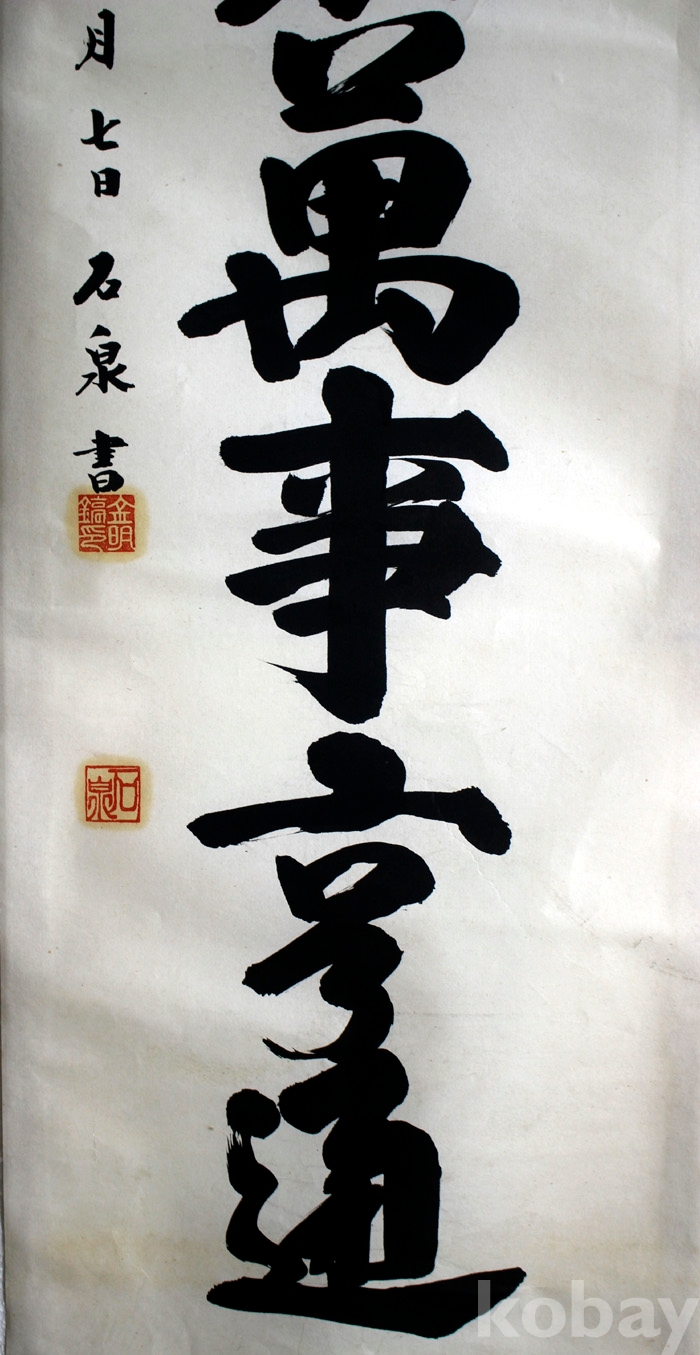 萬事亨通
月七日 石泉書
金明鎬印
石泉
kobay